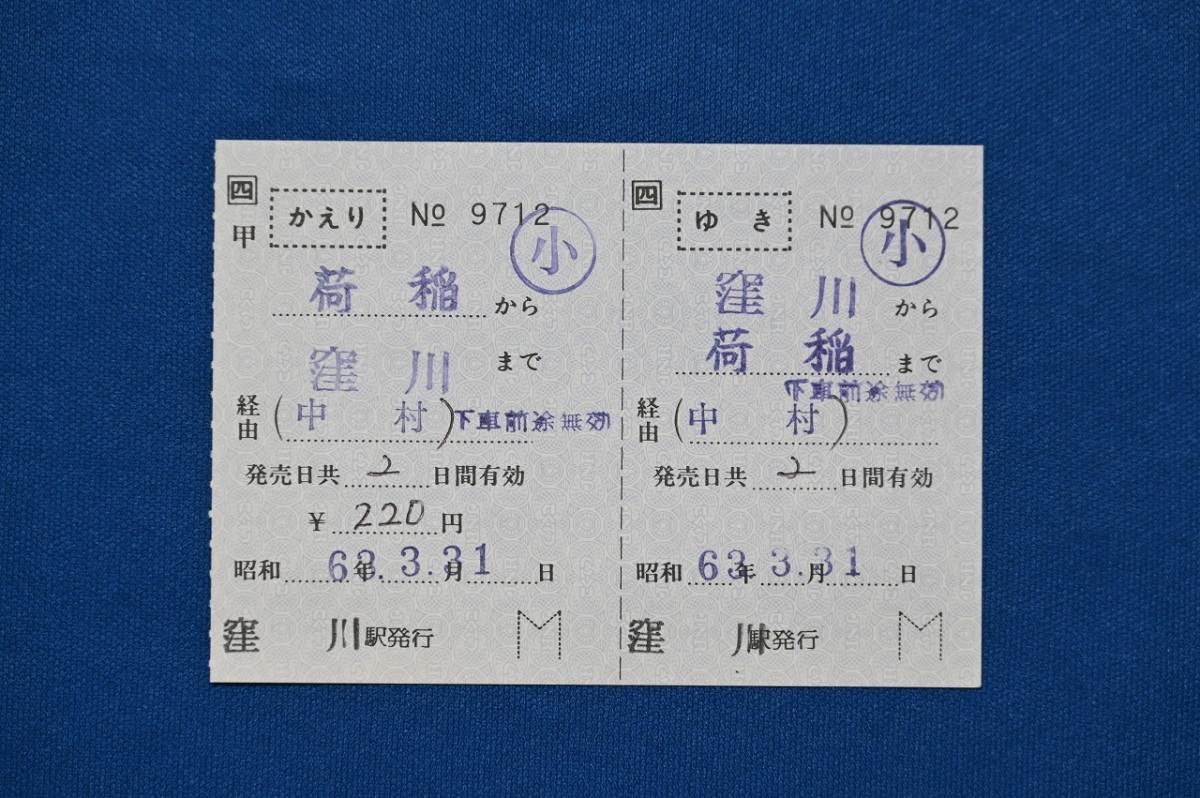 四
甲
かえり
№ 9712
小
荷稲から
窪川まで
経由(中村)
下車前途無効
発売日共2日間有効
¥220円
昭和63年3.月31日
窪川駅発行
四
ゆき
№ 9712
小
窪川から
荷稲まで
下車前途無効
経由(中村)
発売日共2日間有効
昭和63年3.月31日
窪川駅発行